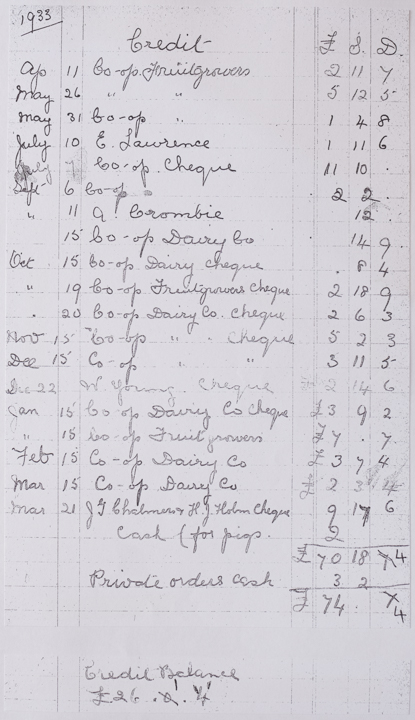 1933
Credit £ S. D.
Ap 11 Co-op. Fruitgrowers 2 11 7
May 26 " " 5 12 5
May 31 Co-op " 1 4 8
July 10 E. Lawrence 1 11 6
Co-op. Cheque 11 10 .
Sept 6 Co-op " 2 2
" 11 A. Crombie 12
15 Co-op Dairy Co 14 9
Oct 15 Co-op Dairy cheque . 8 4
" 19 Co-op Fruitgrowers Cheque 2 18 9
. 20 Co-op Dairy Co. Cheque 2 6 3
Nov 15 Co-op " . Cheque 5 2 3
Dec 15 Co-op " " 3 11 5
Dec 22 W Young. Cheque 2 14 6
Jan 15 Co-op Dairy Co Cheque £3 9 2
" 15 Co-op Fruitgrowers £7 . 7
Feb 15 Co-op Dairy Co £3 7 4
Mar 15 Co-op Dairy Co £2 3
Mar 21 J G Chalmers & H. J. Holm Cheque 9 17 6
Cash (for pigs. 2
£70 18 4
Private orders cash 3 2
£74 . 4
Credit Balance
£26